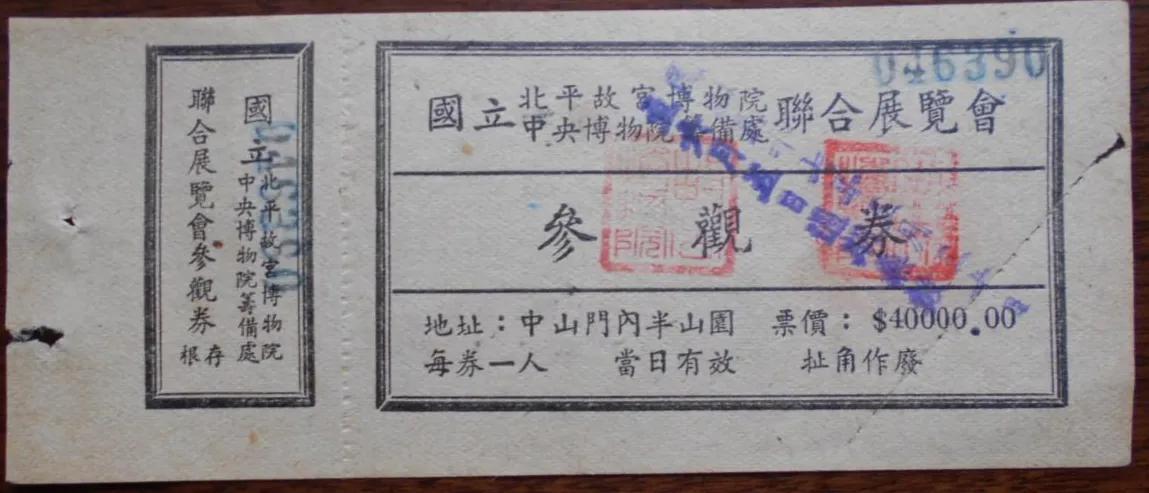 046390
國立北平故宮博物院
中央博物院籌備處聯合展覽會
參觀券
地址：中山門內半山園 票價：$40000.00
每券一人 當日有效 扯角作廢
國立北平故宮博物院
中央博物院籌備處
聯合展覽會參觀券
存根